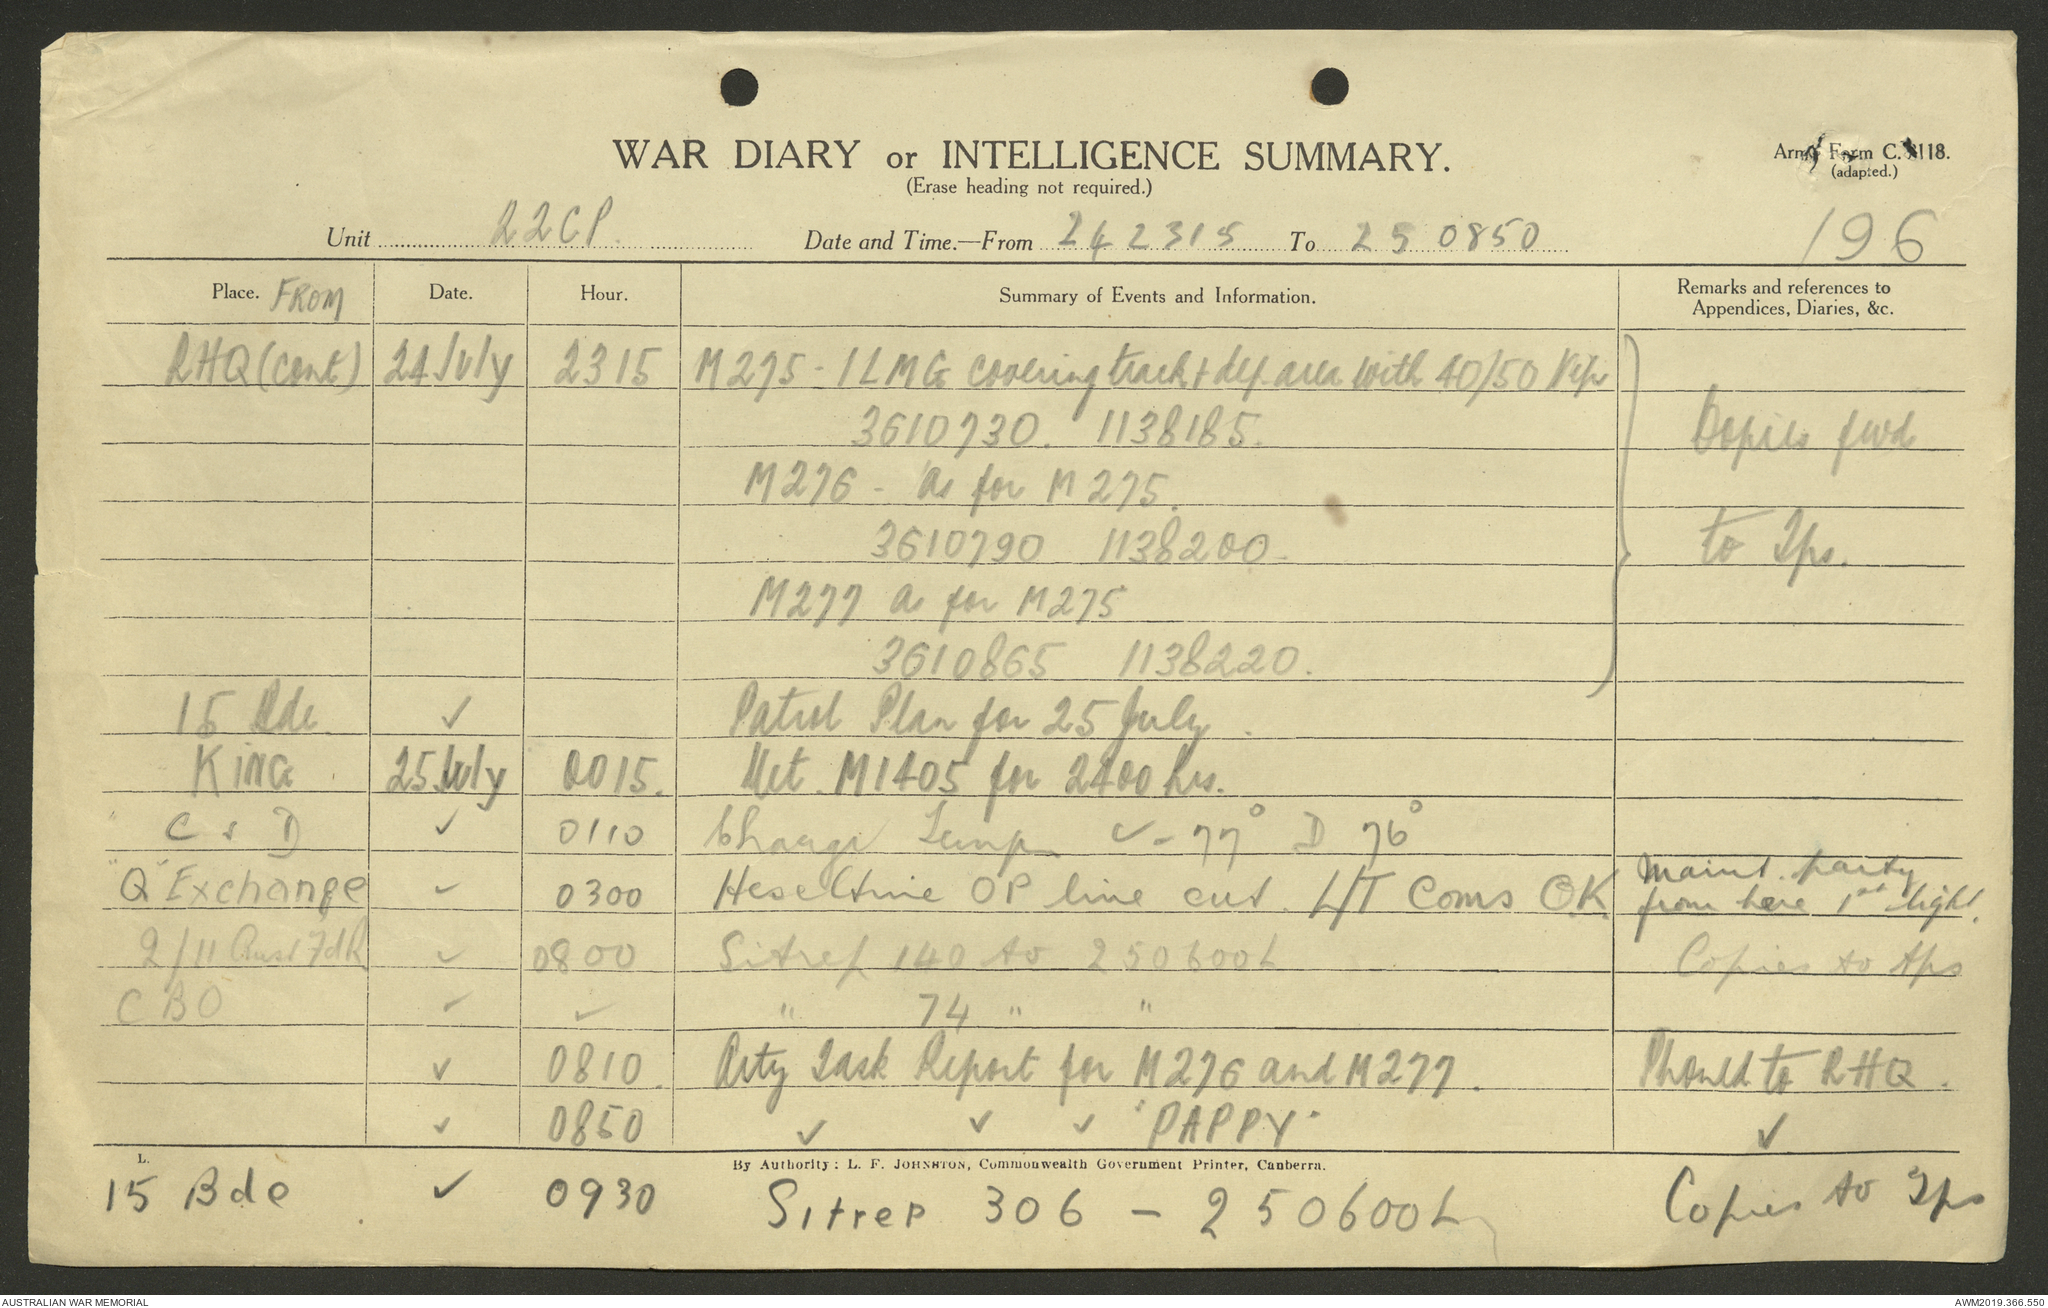 WAR DIARY or INTELLIGENCE SUMMARY.
(Erase heading not required.)
Army Form C.2118.
(adapted.)
196
Unit 22CP. Date and Time.—From 242315 To 250850
Place. FROM Date. Hour. Summary of Events and Information. Remarks and references to Appendices, Diaries, &c.
RHQ (cont) 24 July 2315 M275 - 1 LMG covering track + def area with 40/50 Nips
3610730. 1138185. Copies fwd
M276 - As for M275.
3610790 1138200 to Tps.
M277 As for M275
3610865 1138220.
15 Bde. ✓ Patrol Plan for 25 July.
KING 25 July 0015. Met. M1405 for 2400 hrs.
C & D ✓ 0110 Charge Temp C - 77° D 76°
"Q" Exchange ✓ 0300 Heseltine OP line cut. L/T Coms O.K. Maint. party from here 1st light.
2/11 Aust Fd R ✓ 0800 Sitrep 140 to 250600L Copies to tps
CBO ✓ ✓ " 74 " "
✓ 0810. Arty Task Report for M276 and M277. Phoned to RHQ.
✓ 0850 ✓ ✓ ✓ "PAPPY" ✓
L. By Authority: L. F. JOHNSTON, Commonwealth Government Printer, Canberra.
15 Bde ✓ 0930 Sitrep 306 - 250600L Copies to Tps
AUSTRALIAN WAR MEMORIAL AWM2019.366.550